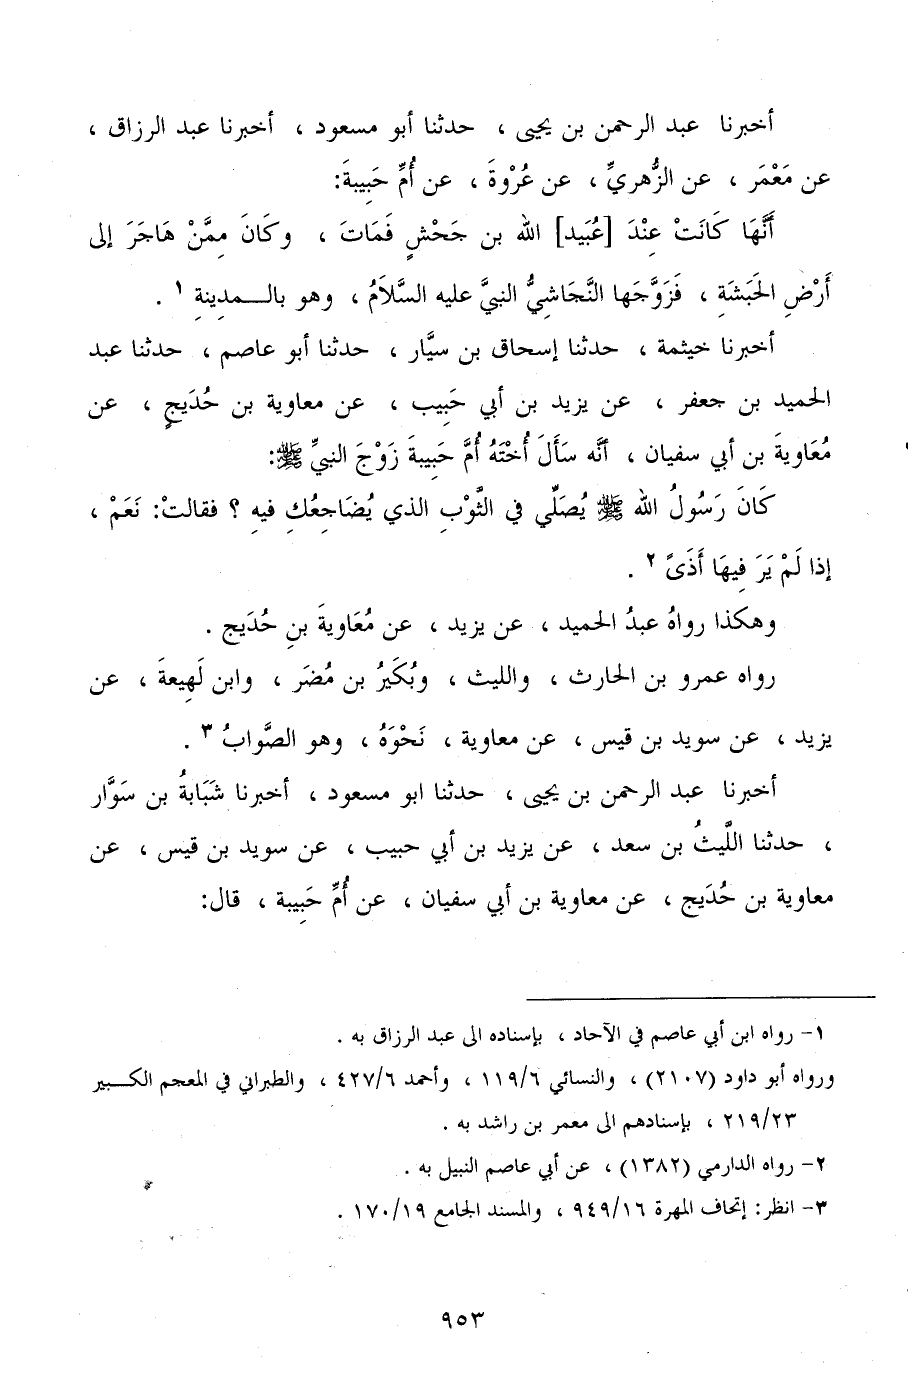 أخبرنا عبد الرحمن بن يحيى ، حدثنا أبو مسعود ، أخبرنا عبد الرزاق ،
عن مَعْمَر ، عن الزُّهريِّ ، عن عُرْوةَ ، عن أُمِّ حَبِيبةَ:
أَنَّهَا كَانَتْ عِنْدَ [عُبَيد] الله بن جَحْشٍ فَمَاتَ ، وكَانَ مِمَّنْ هَاجَرَ إلى
أَرْضِ الحَبَشَةِ ، فَزَوَّجَها النَّجَاشِيُّ النبيَّ عليه السَّلاَمُ ، وهو بالـــمدِينةِ ١ .
أخبرنا خيثمة ، حدثنا إسحاق بن سيَّار ، حدثنا أبو عاصم ، حدثنا عبد
الحميد بن جعفر ، عن يزيد بن أبي حَبِيب ، عن معاوية بن حُدَيجٍ ، عن
مُعَاويةَ بن أبي سفيان ، أنَّه سَأَلَ أُخْتَهُ أُمَّ حَبِيبةَ زَوْجَ النبيِّ ﷺ:
كَانَ رَسُولُ الله ﷺ يُصَلِّي في الثَّوْبِ الذي يُضَاجِعُكِ فيهِ ؟ فقالتْ: نَعَمْ ،
إذا لَمْ يَرَ فِيهَا أَذَىً ٢ .
وهكذا رواهُ عبدُ الحميد ، عن يزيد ، عن مُعَاويةَ بنِ حُدَيج .
رواه عمرو بن الحارث ، والليث ، وبُكَيرُ بن مُضَر ، وابن لَهِيعةَ ، عن
يزيد ، عن سويد بن قيس ، عن معاوية ، نَحْوَهُ ، وهو الصَّوابُ ٣ .
أخبرنا عبد الرحمن بن يحيى ، حدثنا ابو مسعود ، أخبرنا شَبَابةُ بن سَوَّار
، حدثنا اللَّيثُ بن سعد ، عن يزيد بن أبي حبيب ، عن سويد بن قيس ، عن
معاوية بن حُدَيج ، عن معاوية بن أبي سفيان ، عن أُمِّ حَبِيبة ، قال:
١- رواه ابن أبي عاصم في الآحاد ، بإسناده الى عبد الرزاق به .
ورواه أبو داود (٢١٠٧) ، والنسائي ١١٩/٦ ، وأحمد ٤٢٧/٦ ، والطبراني في المعجم الكـــبير
٢١٩/٢٣ ، بإسنادهم الى معمر بن راشد به .
٢- رواه الدارمي (١٣٨٢) ، عن أبي عاصم النبيل به .
٣- انظر: إتحاف المهرة ٩٤٩/١٦ ، والمسند الجامع ١٧٠/١٩ .
٩٥٣